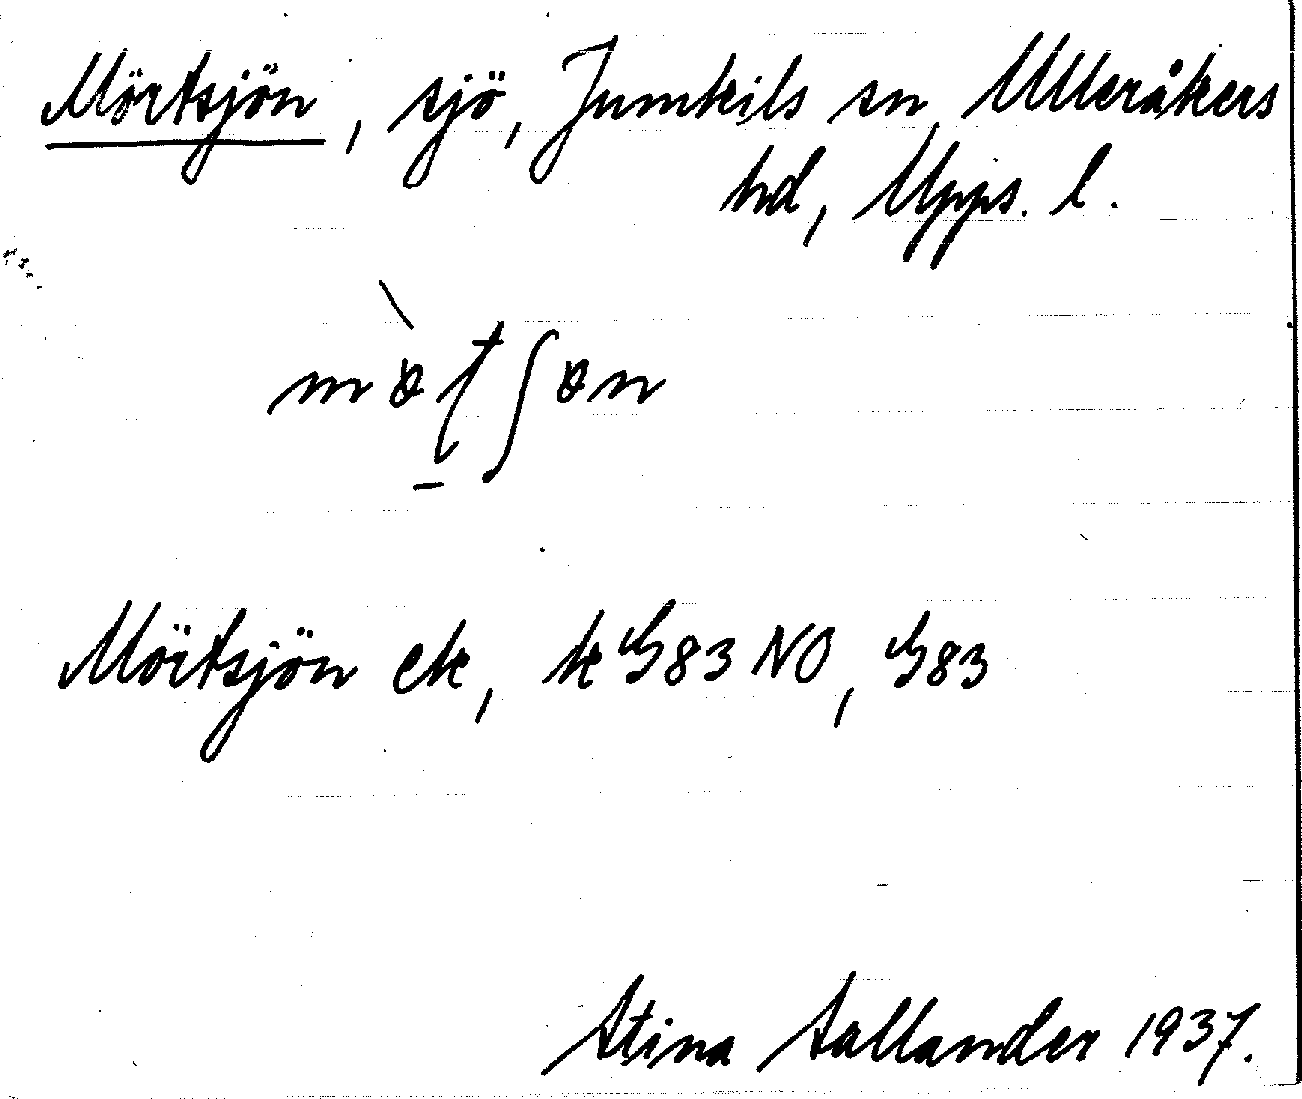 Mörtsjön, sjö, Jumkils sn, Ulleråkers
hd, Upps. l.
Mörtsjön ek, k G83 NO, G83
Stina Sallander 1937.